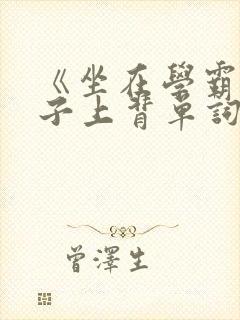 《坐在學霸
子上背單詞
曾澤生